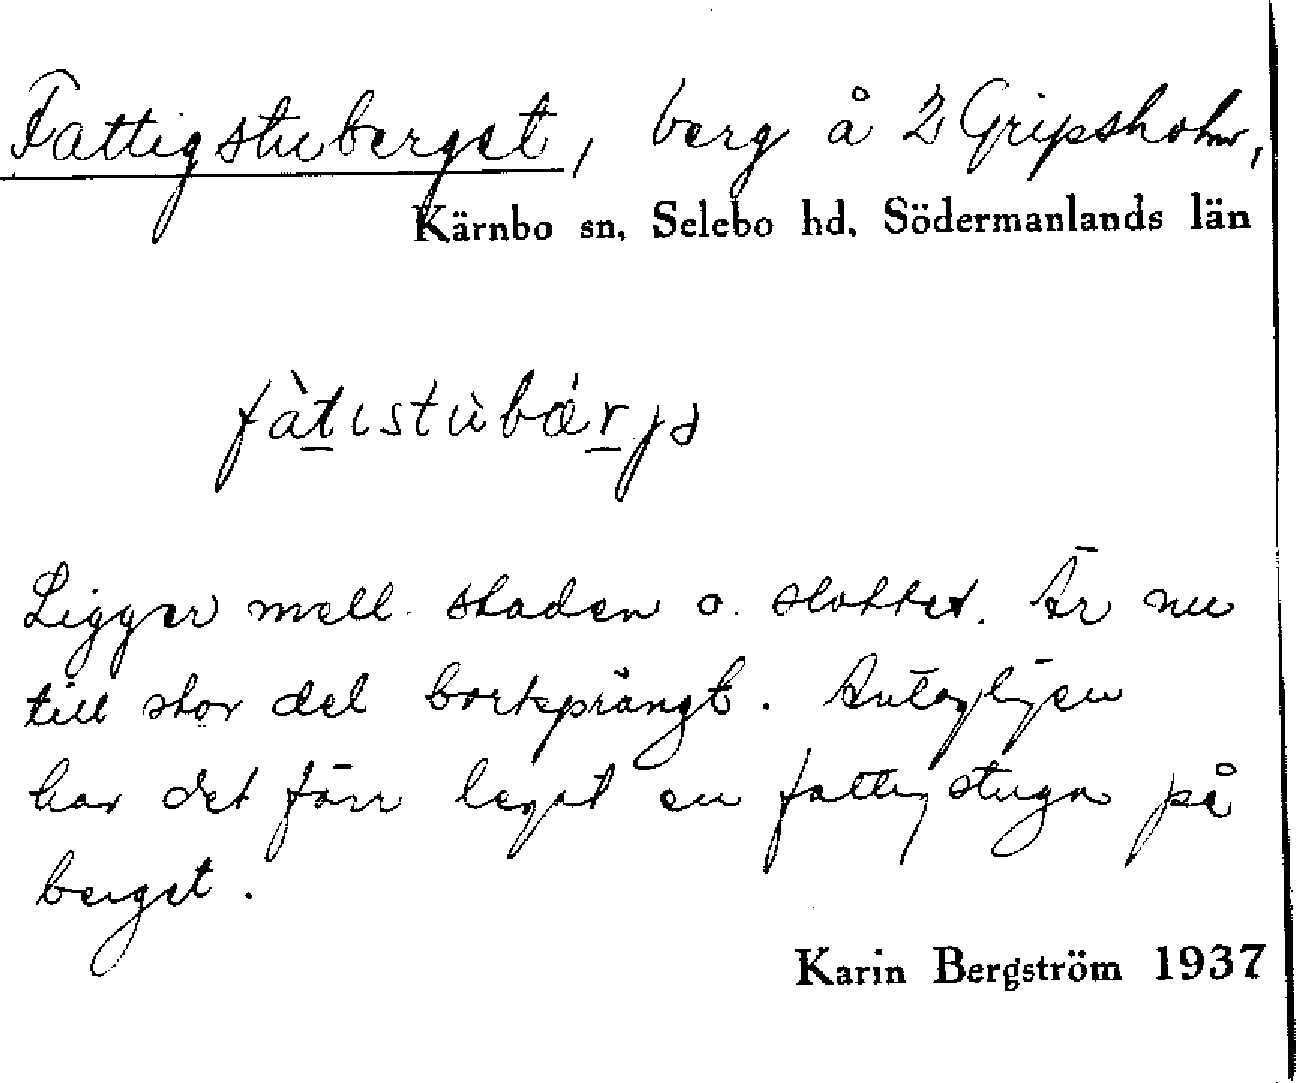 Fattigstuberget, berg å 2 Gripsholm,
Kärnbo sn, Selebo hd, Södermanlands län
fàt̲ıstùbǽr̲jə
Ligger mell. staden o. slottet. Är nu
till stor del bortsprängt. Antagligen
har det förr legat en fattigstuga på
berget.
Karin Bergström 1937